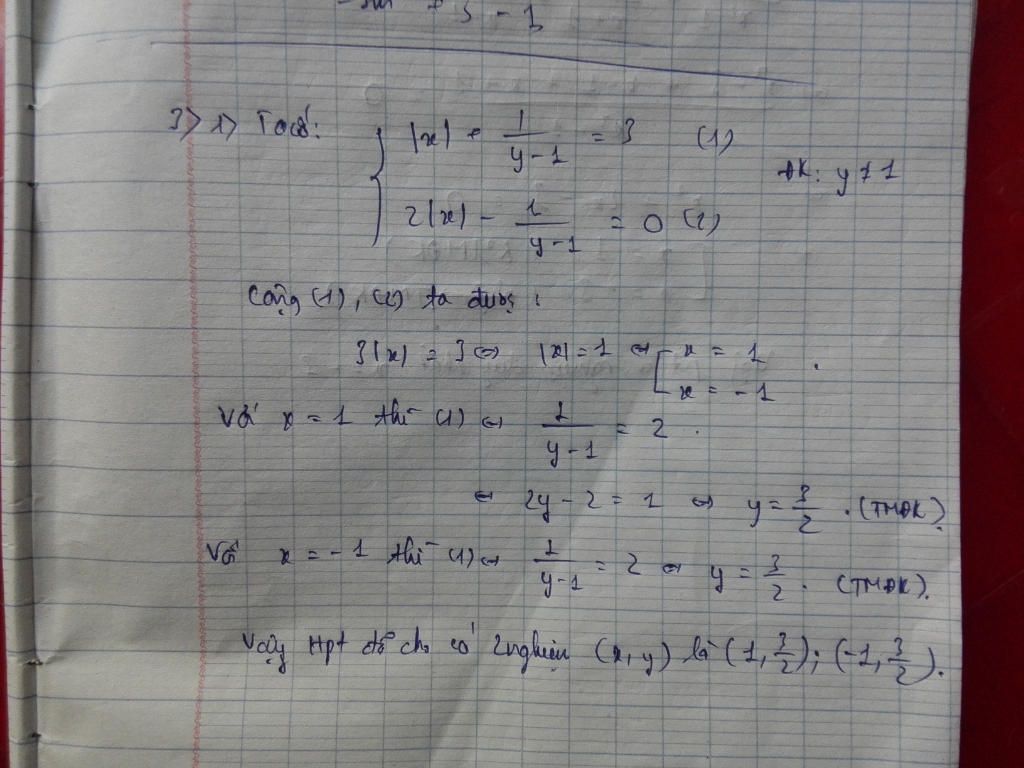 + 3 - 1
3> 1> Ta có:
|x| + 1/(y-1) = 3 (1)
ĐK: y ≠ 1
2|x| - 1/(y-1) = 0 (2)
Cộng (1), (2) ta được:
3|x| = 3 ⇔ |x| = 1 ⇔ [ x = 1
x = -1
Với x = 1 thì (1) ⇔ 1/(y-1) = 2.
⇔ 2y - 2 = 1 ⇔ y = 3/2. (TMĐK).
Với x = -1 thì (1) ⇔ 1/(y-1) = 2 ⇔ y = 3/2. (TMĐK).
Vậy Hpt đã cho có 2 nghiệm (x, y) là (1, 3/2); (-1, 3/2).